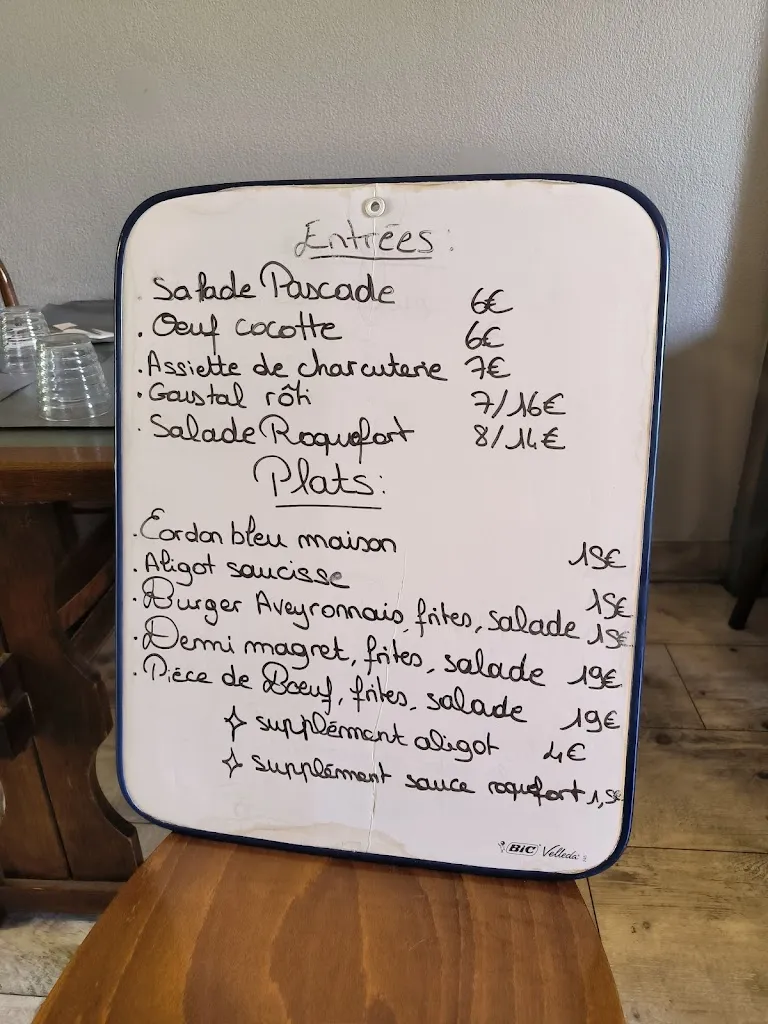 Entrées :
. Salade Pascade 6€
. Oeuf cocotte 6€
. Assiette de charcuterie 7€
. Gaustal rôti 7/16€
. Salade Roquefort 8/14€
Plats :
. Cordon bleu maison 15€
. Aligot saucisse 15€
. Burger Aveyronnais, frites, salade 15€
. Demi magret, frites, salade 19€
. Pièce de Bœuf, frites, salade 19€
✧ supplément aligot 4€
✧ supplément sauce roquefort 1,5€
BIC Velleda